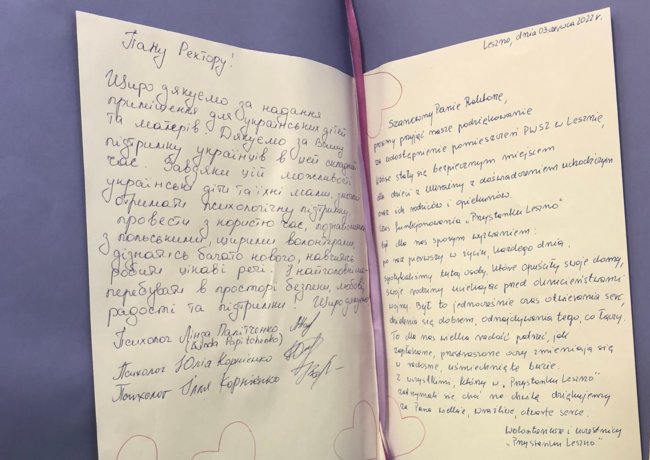 Пану Ректору!
Щиро дякуємо за надання
приміщення для українських дітей
та матерів. Дякуємо за Вашу
підтримку українців в цей складний
час. Завдяки цій можливості
українські діти та їхні мами, змогли
отримати психологічну підтримку,
провести з користю час, познайомитись
з польськими, щирими волонтерами,
дізнатись багато нового, навчитись
робити цікаві речі. І найголовніше -
перебувати в просторі безпеки, любові,
радості та підтримки! Щиро дякуємо
Психолог Лінда Папітченко
(Linda Papitchenko)
Психолог Юлія Корнієнко
Психолог Ілля Корнієнко
Leszno, dnia 03 czerwca 2022 r.
Szanowny Panie Rektorze,
prosimy przyjąć nasze podziękowanie
za udostępnienie pomieszczeń PWSZ w Lesznie,
które stały się bezpiecznym miejscem
dla dzieci z Ukrainy z doświadczeniem uchodźczym
oraz ich rodziców i opiekunów.
Czas funkcjonowania „Przystanku Leszno"
był dla nas sporym wyzwaniem:
po raz pierwszy w życiu, każdego dnia,
spotykaliśmy tutaj osoby, które opuściły swoje domy,
swoje rodziny uciekając przed okrucieństwami
wojny. Był to jednocześnie czas otwierania serc,
dzielenia się dobrem, odnajdywania tego, co łączy.
To dla nas wielka radość patrzeć, jak
zapłakane, przestraszone oczy zmieniają się
w radosne, uśmiechnięte buzie.
Z wszystkimi, którzy w „Przystanku Leszno"
zatrzymali się choć na chwilę dziękujemy
za Pana wielkie, wrażliwe, otwarte serce.
Wolontariusze i uczestnicy
"Przystanku Leszno"